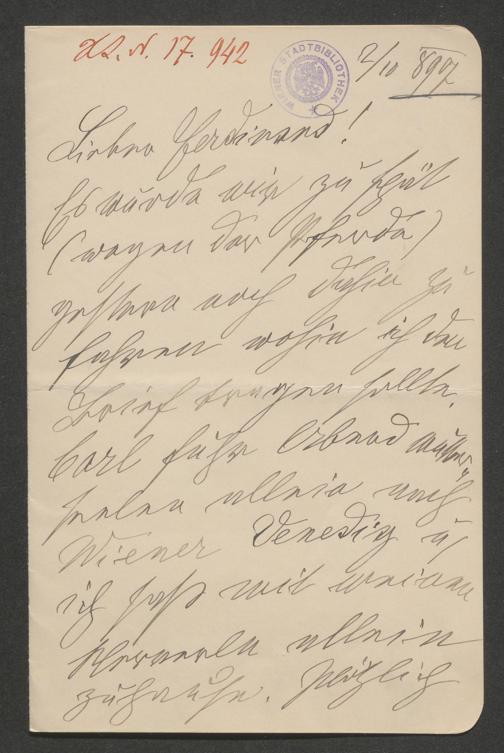 I. N. 17.942
WIENER STADTBIBLIOTHEK
2/10 899
Lieber Ferdinand!
Es wurde mir zu spät
(wegen der Pferde)
gestern noch dahin zu
fahren wohin ich den
Brief tragen sollte.
Carl fuhr Abend mutter
seelen allein nach
Wiener Venedig u
ich saß mit meinem
allein
zuhause. Plötzlich